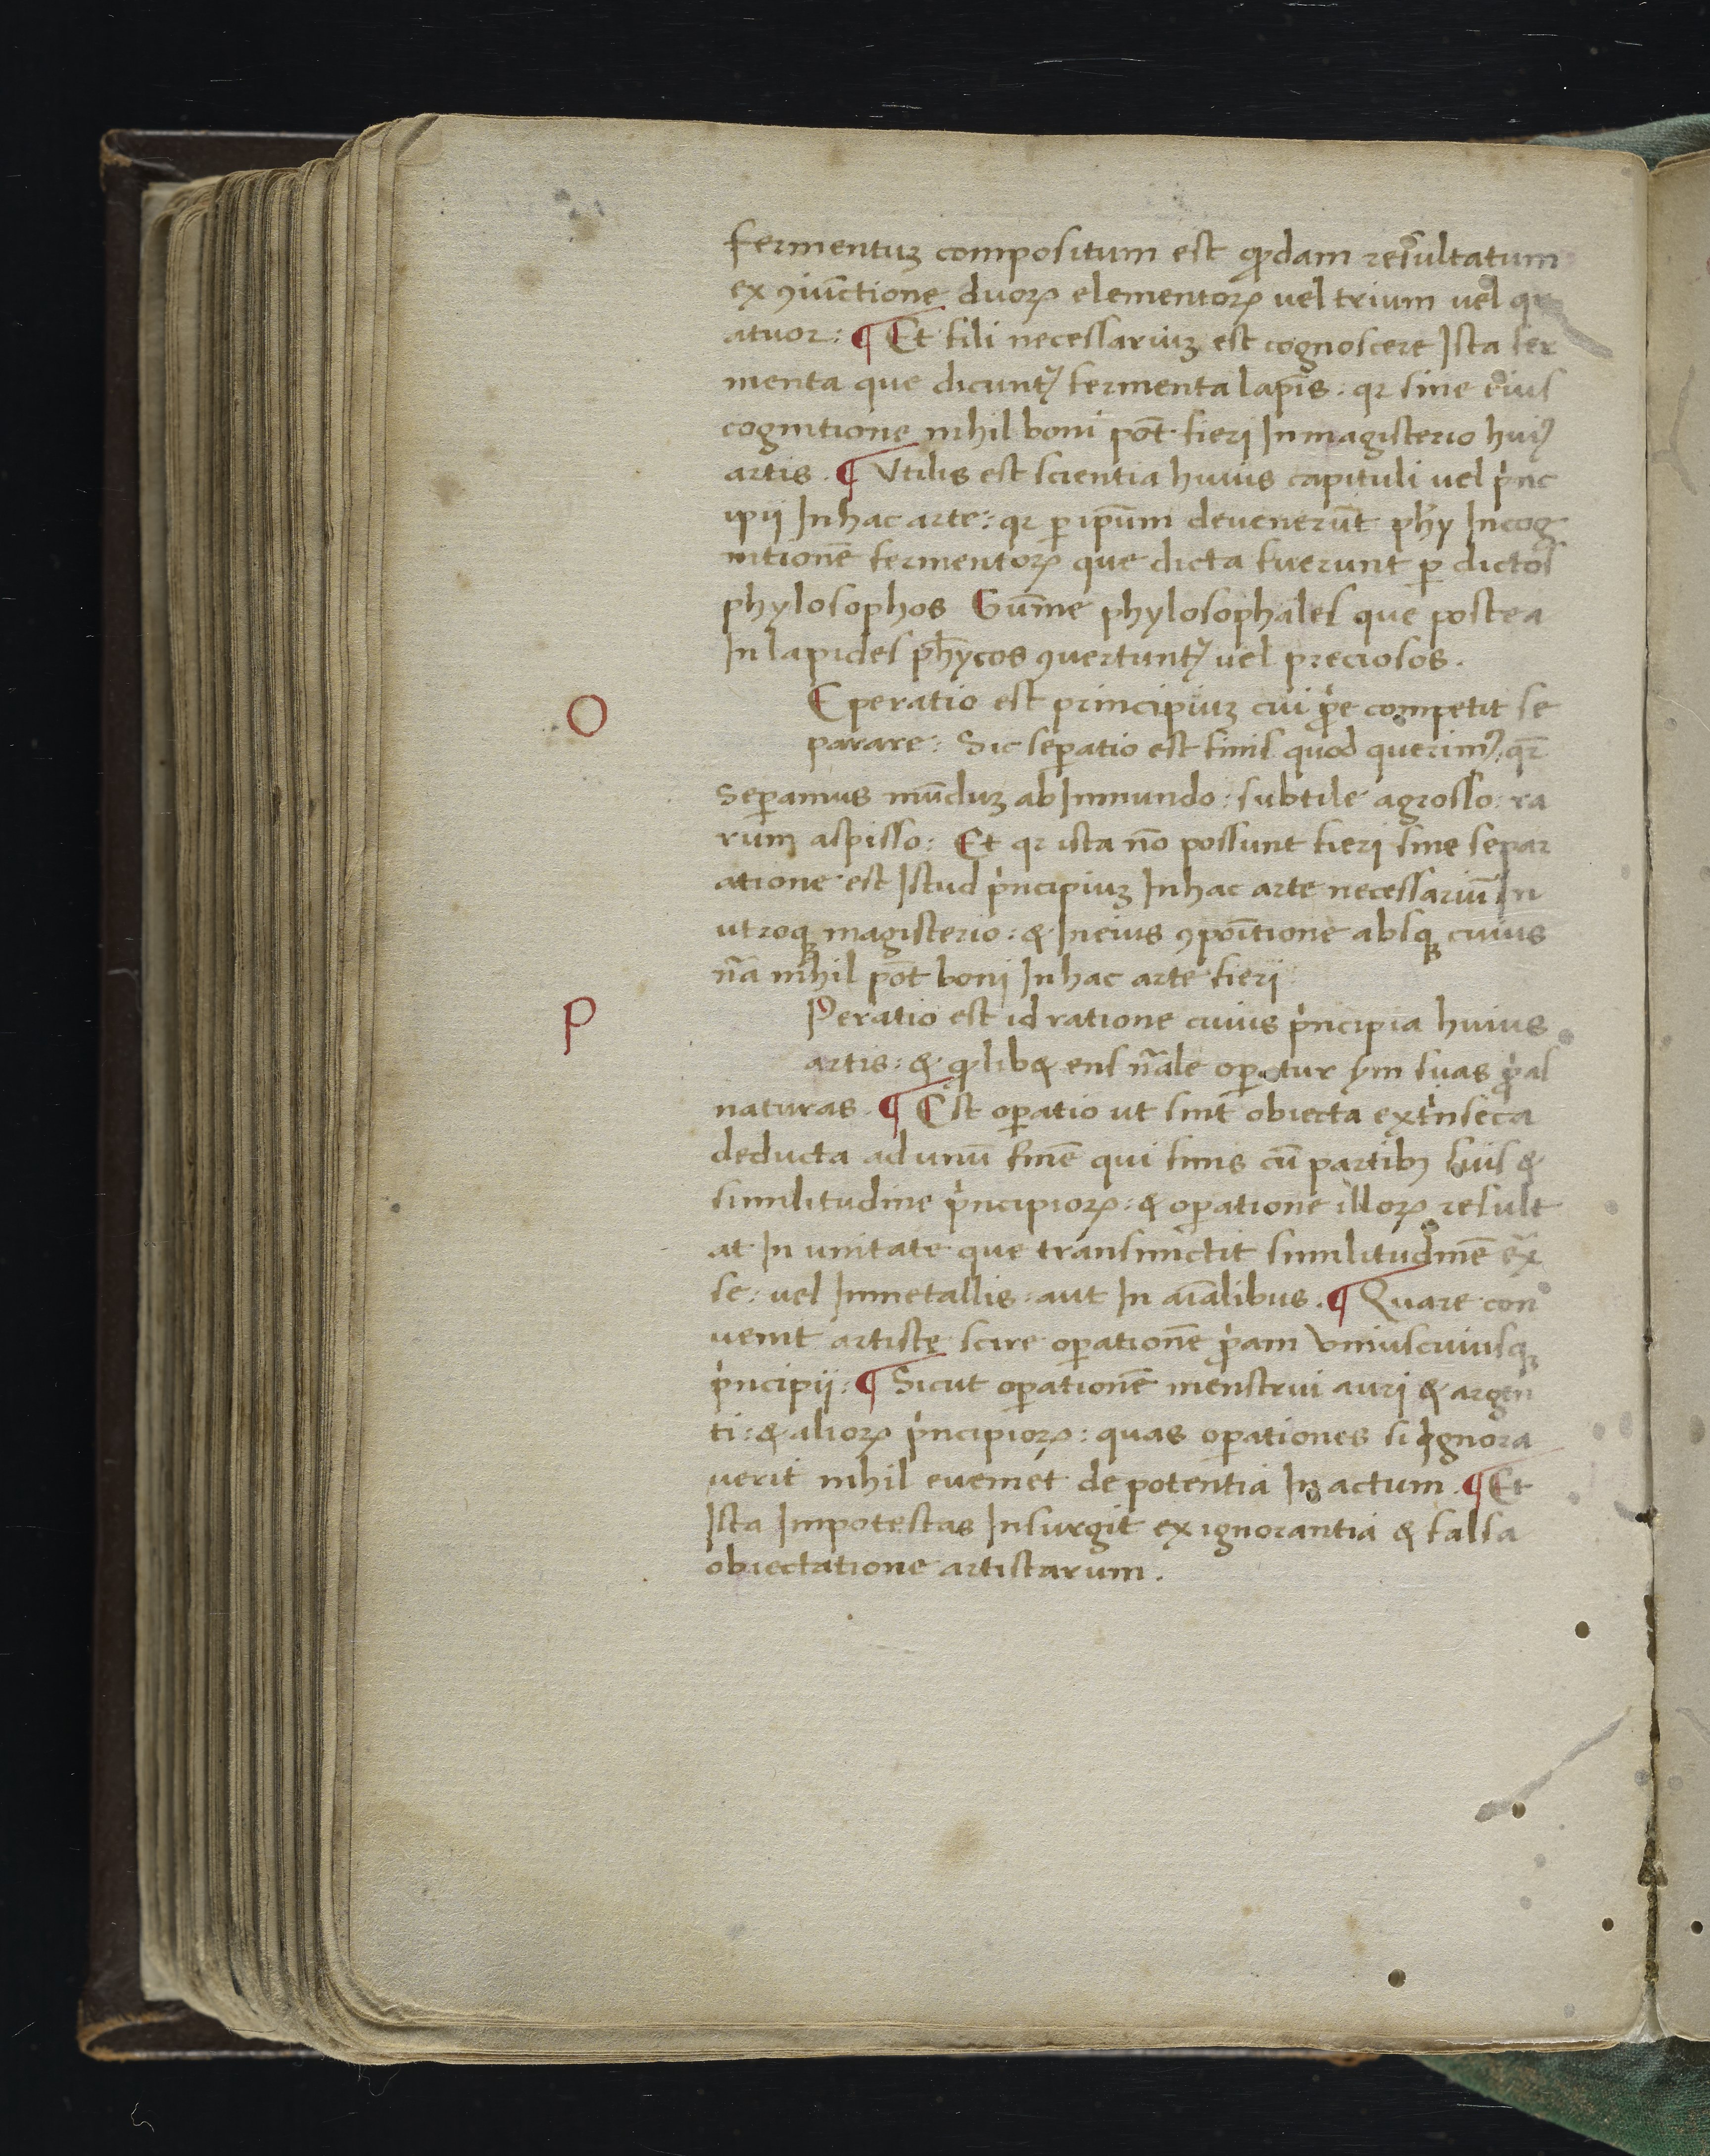 fermentuꝫ compositum est qͥdam resultatum
ex ꝯiūctione duoꝝ elementoꝝ uel trium uel qu
atuor: ¶ Et fili necessariuꝫ est cognoscere Ista fer
menta que dicuntᷣ fermenta lapīs: qꝛ sine eius
cognitione nihil boni pōt fieri In magisterio huiꝰ
artis. ¶ Vtilis est scientia huius capituli uel pͥnc
ipii In hac arte: qꝛ ꝑ ip̄um deuenerūt phȳ In cog
nitionē fermentoꝝ que dicta fuerunt ꝑ dictos
phylosophos Gūme phylosophales que postea
In lapides phȳcos ꝯuertuntᷣ uel preciosos.
O Eperatio est principiuꝫ cui ꝓpͥe competit se
parare: Sic seꝑatio est finis quod querimꝰ: qꝛ
Seꝑamus mūduꝫ ab Inmundo: subtile a grosso: ra
rum a spisso: Et qꝛ ista nō possunt fieri sine separ
atione est Istud pͥncipiuꝫ In hac arte necessariū In
utroqꝫ magisterio: & In eius ꝯpōitione absqꝫ cuius
nā nihil pōt boni In hac arte fieri
P Peratio est id ratione cuius pͥncipia huius
artis: & qͥlibꝫ ens nāle operatur sꝫm suas ꝓpͥas
naturas. ¶ Est oꝑatio ut sint obiecta extͥnseca
deducta ad unū finē qui finis cū partibꝫ suis &
similitudine pͥncipioꝝ: & oꝑatione illoꝝ result
at In unitate que transmictit similitudinē ex̄
se: uel In metallis: aut In aīalibus. ¶ Quare con
uenit artiste scire oꝑationē ꝓpͥam vniuscuiusqꝫ
pͥncipii: ¶ Sicut oꝑationē menstrui auri & argen
ti: & alioꝝ pͥncipioꝝ: quas oꝑationes si Ignora
uerit nihil eueniet de potentia In actum. ¶ Et
Ista Impotestas Insurgit ex ignorantia & falsa
obiectatione artistarum.